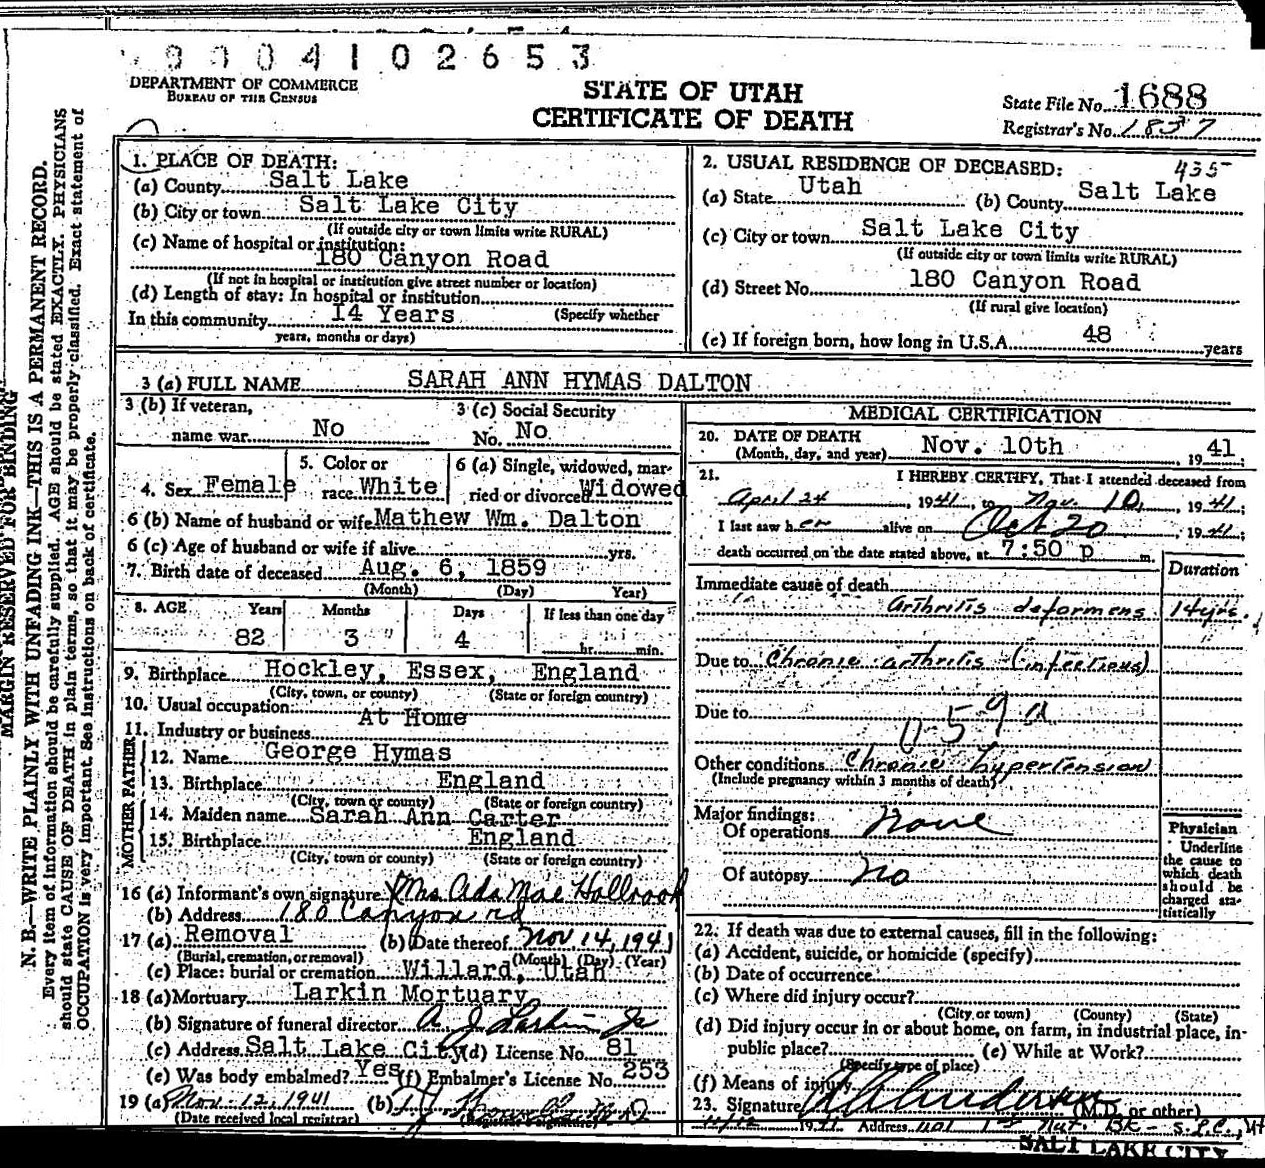 9 0 0 4 1 0 2 6 5 3
DEPARTMENT OF COMMERCE
BUREAU OF THE CENSUS
STATE OF UTAH
CERTIFICATE OF DEATH
State File No. 1688
Registrar's No. 1837
1. PLACE OF DEATH:
(a) County Salt Lake
(b) City or town Salt Lake City
(If outside city or town limits write RURAL)
(c) Name of hospital or institution:
180 Canyon Road
(If not in hospital or institution give street number or location)
(d) Length of stay: In hospital or institution
In this community 14 Years (Specify whether
years, months or days)
2. USUAL RESIDENCE OF DECEASED: 435
(a) State Utah (b) County Salt Lake
(c) City or town Salt Lake City
(If outside city or town limits write RURAL)
(d) Street No. 180 Canyon Road
(If rural give location)
(e) If foreign born, how long in U.S.A. 48 years
3 (a) FULL NAME SARAH ANN HYMAS DALTON
3 (b) If veteran,
name war No
3 (c) Social Security
No. No
4. Sex Female
5. Color or
race White
6 (a) Single, widowed, mar-
ried or divorced Widowed
6 (b) Name of husband or wife Mathew Wm. Dalton
6 (c) Age of husband or wife if alive yrs.
7. Birth date of deceased Aug. 6, 1859
(Month) (Day) Year)
8. AGE Years Months Days If less than one day
82 3 4 hr. min.
9. Birthplace Hockley, Essex, England
(City, town, or county) (State or foreign country)
10. Usual occupation At Home
11. Industry or business
FATHER
12. Name George Hymas
13. Birthplace England
(City, town or county) (State or foreign country)
MOTHER
14. Maiden name Sarah Ann Carter
15. Birthplace England
(City, town or county) (State or foreign country)
16 (a) Informant's own signature X Mrs Ada Mae Holbrook
(b) Address 180 Canyon rd
17 (a) Removal (b) Date thereof Nov 14, 1941
(Burial, cremation, or removal) (Month) (Day) (Year)
(c) Place: burial or cremation Willard, Utah
18 (a) Mortuary Larkin Mortuary
(b) Signature of funeral director A J Larkin Jr
(c) Address Salt Lake City (d) License No. 81
(e) Was body embalmed? Yes (f) Embalmer's License No. 253
19 (a) Nov-12, 1941 (b)
(Date received local registrar) (Registrar's signature)
MEDICAL CERTIFICATION
20. DATE OF DEATH
(Month, day, and year) Nov. 10th 1941;
21. I HEREBY CERTIFY, That I attended deceased from
April 24, 1941, to Nov. 10, 1941;
I last saw her alive on Oct 20, 1941;
death occurred on the date stated above, at 7:50 p m.
Duration
Immediate cause of death
Arthritis deformens 14 yrs.
Due to Chronic arthritis (infectious)
Due to
0-59 a
Other conditions Chronic hypertension
(Include pregnancy within 3 months of death)
Major findings:
Of operations None
Of autopsy No
Physician
Underline
the cause to
which death
should be
charged sta-
tistically
22. If death was due to external causes, fill in the following:
(a) Accident, suicide, or homicide (specify)
(b) Date of occurrence
(c) Where did injury occur?
(City or town) (County) (State)
(d) Did injury occur in or about home, on farm, in industrial place, in
public place? (e) While at Work?
(Specify type of place)
(f) Means of injury
23. Signature Anderson (M.D. or other)
11/12 1941 Address 1101 1st Nat. Bk - S.L.C., Ut
SALT LAKE CITY
MARGIN RESERVED FOR BINDING
N. B.—WRITE PLAINLY WITH UNFADING INK—THIS IS A PERMANENT RECORD.
Every item of information should be carefully supplied. AGE should be stated EXACTLY. PHYSICIANS
should state CAUSE OF DEATH in plain terms, so that it may be properly classified. Exact statement of
OCCUPATION is very important. See instructions on back of certificate.